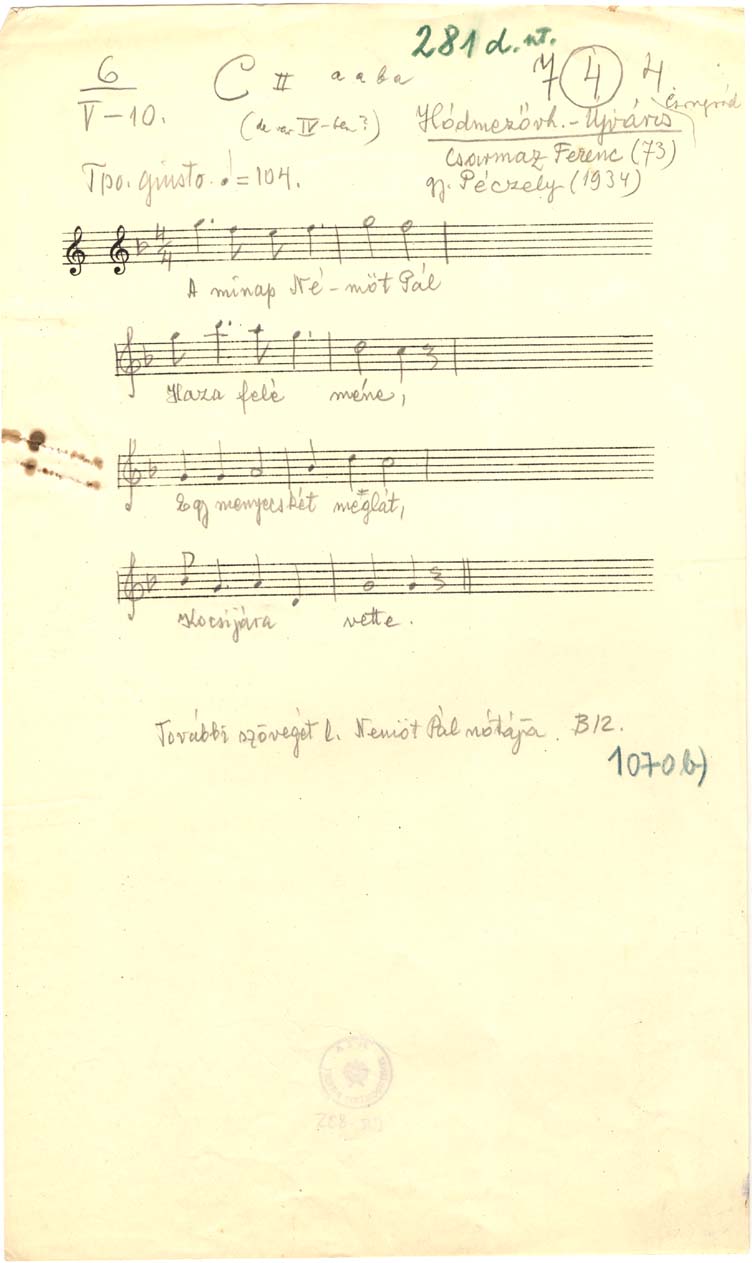 281 d. nt.
6
V-10.
C II a a b a
7 4 4
Csongrád
(de var IV-ben?)
Hódmezővh.-Újváros
Tpo. giusto. ♩=104.
Csarmaz Ferenc (73)
gy. Péczely (1934)
4
4
A minap Né-möt Pál
Haza felé méne,
Egy menyecskét meglát,
Kocsijára vette.
További szövegét l. Nemöt Pál nótája. B12.
1070 b)